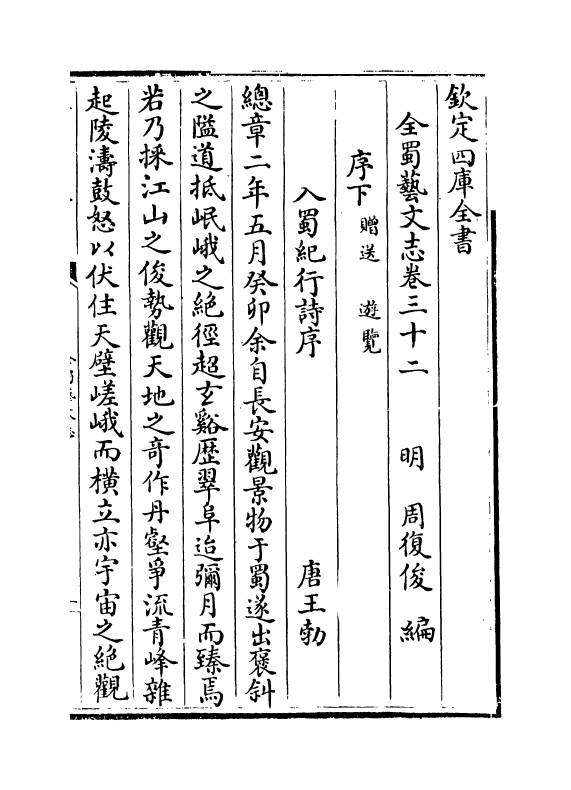 欽定四庫全書
全蜀藝文志卷三十二　明　周復俊　編
序下　贈送　遊覽
入蜀紀行詩序　唐王勃
總章二年五月癸卯余自長安觀景物于蜀遂出褒斜
之隘道抵岷峨之絶徑超玄谿歴翠阜迨彌月而臻焉
若乃採江山之俊勢觀天地之奇作丹壑爭流青峰雜
起陵濤鼓怒以伏住天壁嵯峨而横立亦宇宙之絶觀